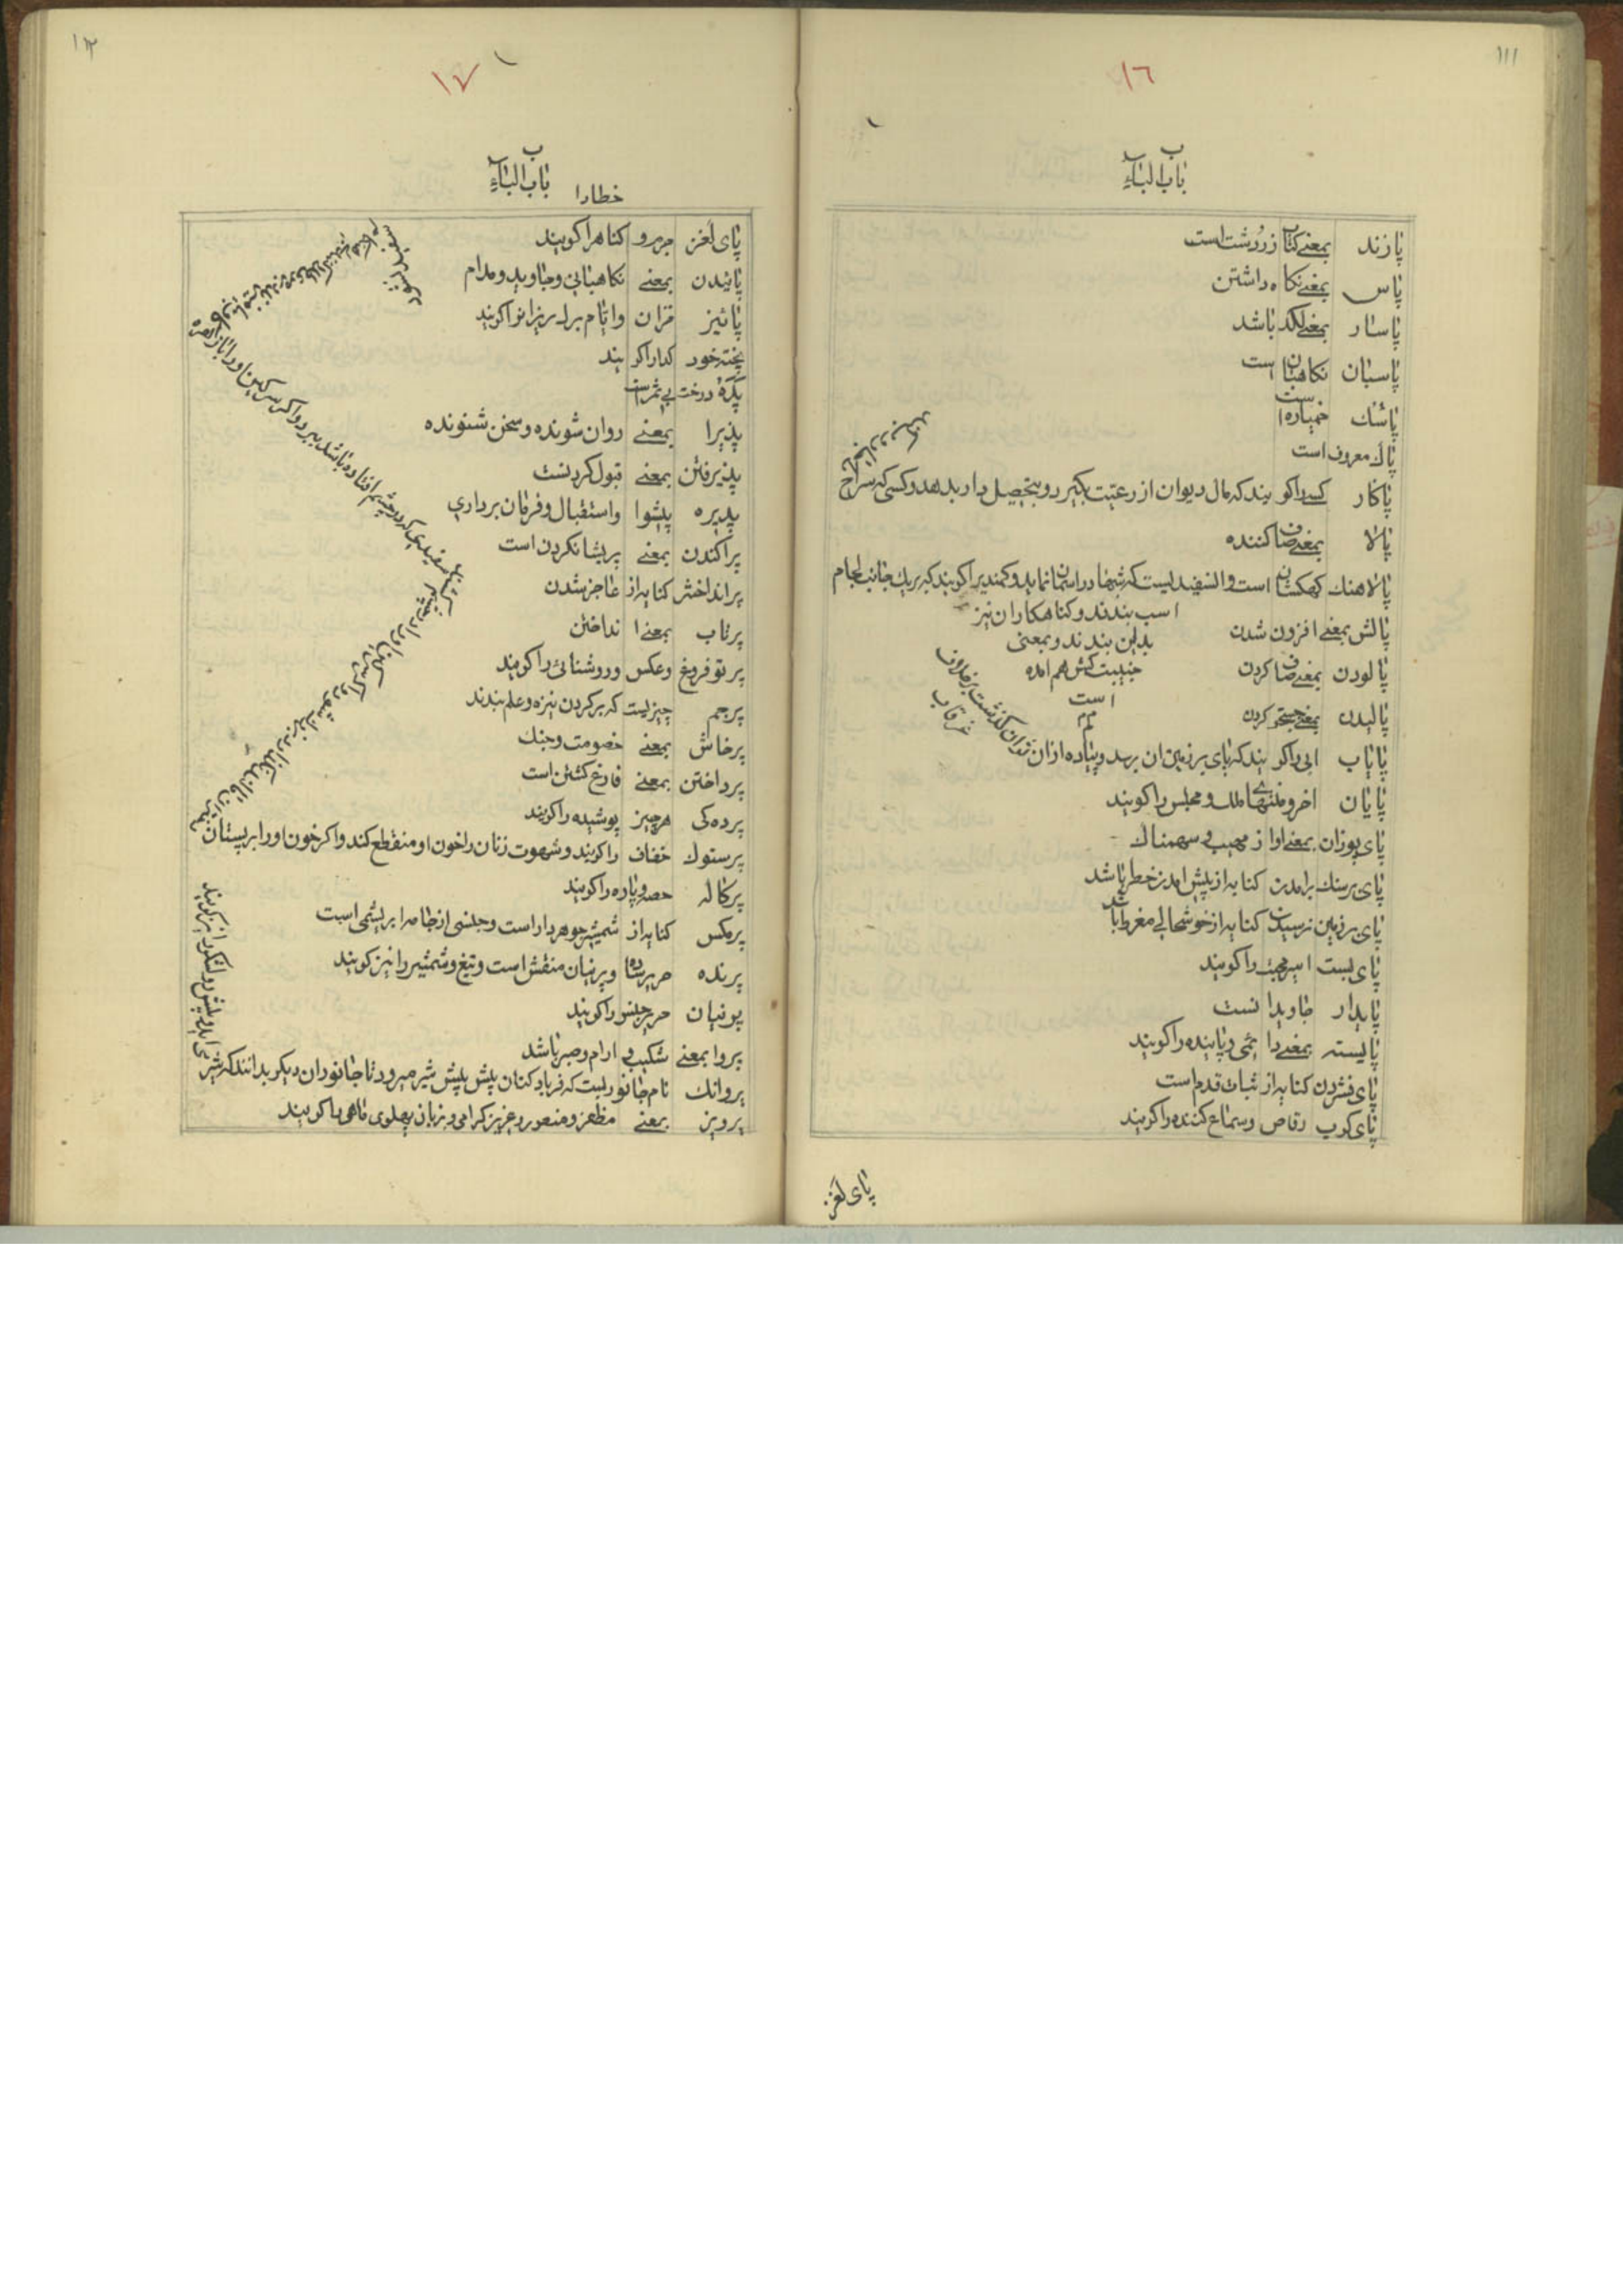 ١١١
١٦
ب
باب الباء
پازند بمعنے کتاب زردشت است
پاس بمغے نکاه داشتن
پاسار بمغے لکد باشد
پاسبان نکاهبان است
پاشك خمیازه است
پاك معروف است
پاکار کسے راکویند که مال دیوان از رعیّت بکیرد و بتحصیل دار بدهد و کسی که سراح
پالا بمغے صاف کننده
پالاهنك کهکشان است و ان سفیدیست که شبها در اسمان نماید و کمندیرا کویند که بریك جانب لجام
اسب بندند و کناهکاران نیز
بدین بندند و بمعنی
جنیبت کش هم امده
است
پالش بمغے افزون شدن
پالودن بمغے صاف کردن
پالیدن بمغے جستجو کردن
پایاب ابی راکویند که پای بر زمین ان برسد و پیاده از ان توان کذشت بر خلاف
غرقاب
پایان اخر و منتهای ملك و مجلس را کویند
پای پوزان بمعنے اواز مهیب و سهمناك
پای بر سنك برامدن کنایه از پیش امدن خطر باشد
پای بر زمین نرسیدن کنایه از خوشحالے مفرط باشد
پای بست اسیر محبت را کویند
پایدار جاویدانست
پایسته بمغے دائمی و پاینده را کویند
پای فشردن کنایه از ثبات قدم است
پای کوب رقاص و سماع کننده را کویند
پای لغز
١١٢
١٧
ب
باب الباء
خطارا
پای لغز جرم و کناهرا کویند
پائیدن بمغے نکاهبانی و جاوید و مدام
پائیز خزان و ایّام برك ریزانرا کویند
پخته خود کدارا کویند
پده درخت بی ثمر است
پذیرا بمغے روان شونده و سخن شنونده
پذیرفتن بمغے قبول کردنست
پذیره پیشوا و استقبال و فرمان برداری
پراکندن بمغے پریشانکردن است
پرانداختن کنایه از عاجز شدن
پرتاب بمغے انداختن
پرتو فروغ و عکس و روشنائی را کویند
پرچم چیزیست که بر کردن نیزه و علم بندند
پرخاش بمغے خصومت و جنك
پرداختن بمغے فارغ کشتن است
پرده کی هر چیز پوشیده را کویند
پرستوك خفاف را کویند و شهوت زنان را خون او منقطع کند و اکر خون او را بر پستان
پرکاله حصه و پاره را کویند
پرمکس کنایه از شمشیر جوهردار است و جنسی از جامه ابریشمی است
پرنده حریر ساده و پرنیان منقش است و تیغ و شمشیر را نیز کویند
پرنیان حریر چینی را کویند
پروا بمغے شکیب و ارام و صبر باشد
پروانك نام جانوریست که فریاد کنان پیش پیش شیر میرود تا جانوران دیکر بدانند که شیر
پرویز بمغے مظفر و منصور و عزیز و کرامی و بزبان پهلوی ماهی را کویند